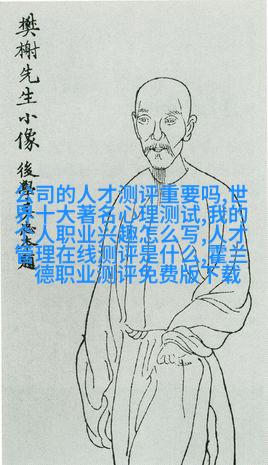 樊榭先生小像
後學
公司的人才测评重要吗,世
界十大著名心理测试,我的
个人职业兴趣怎么写,人才
管理在线测评是什么,霍兰
德职业测评免费版下载